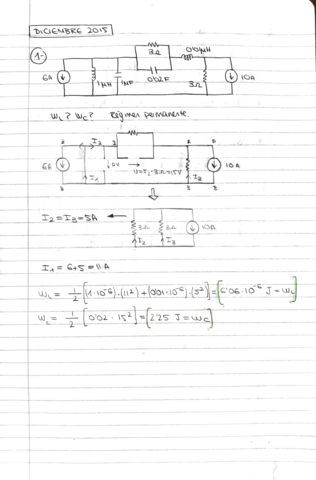 DICIEMBRE 2015
1-
3Ω 0'01μH
6A 1μH 1μF 0'02F 3Ω 10A
WL? WC? Régimen permanente.
I2
6A I1 0V V=I2·3Ω=15V I3 10A
I2=I3=5A 3Ω 3Ω 10A
I2 I3
I1 = 6+5 = 11A
WL = 1/2 [(1·10^-6)·(11^2) + (0'01·10^-6)·(5^2)] = [6'06·10^-6 J = WL]
WL = 1/2 [0'02 · 15^2] = [2'25 J = WC]